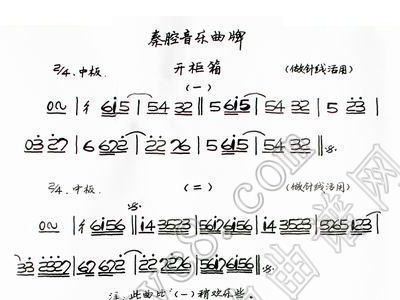 秦腔音乐曲牌
2/4. 中板. 开柜箱 (做针线活用)
(一)
0 2 | 1 6i5 | 54 32 || 5 6i5 | 54 32 | 5 23 |
03 27 | 6 622 | 22 76 | 5 6i5 | 54 32 ||
2/4. 中板 (二) (做针线活用)
0 2 | 1 6i56 || i4 3523 | 5617 6156 | i4 3523 | 5265 123 |
33 2327 | 6762 622 | 22 2226 | 5617 6156 ||
注: 此曲比 (一) 稍欢乐些.